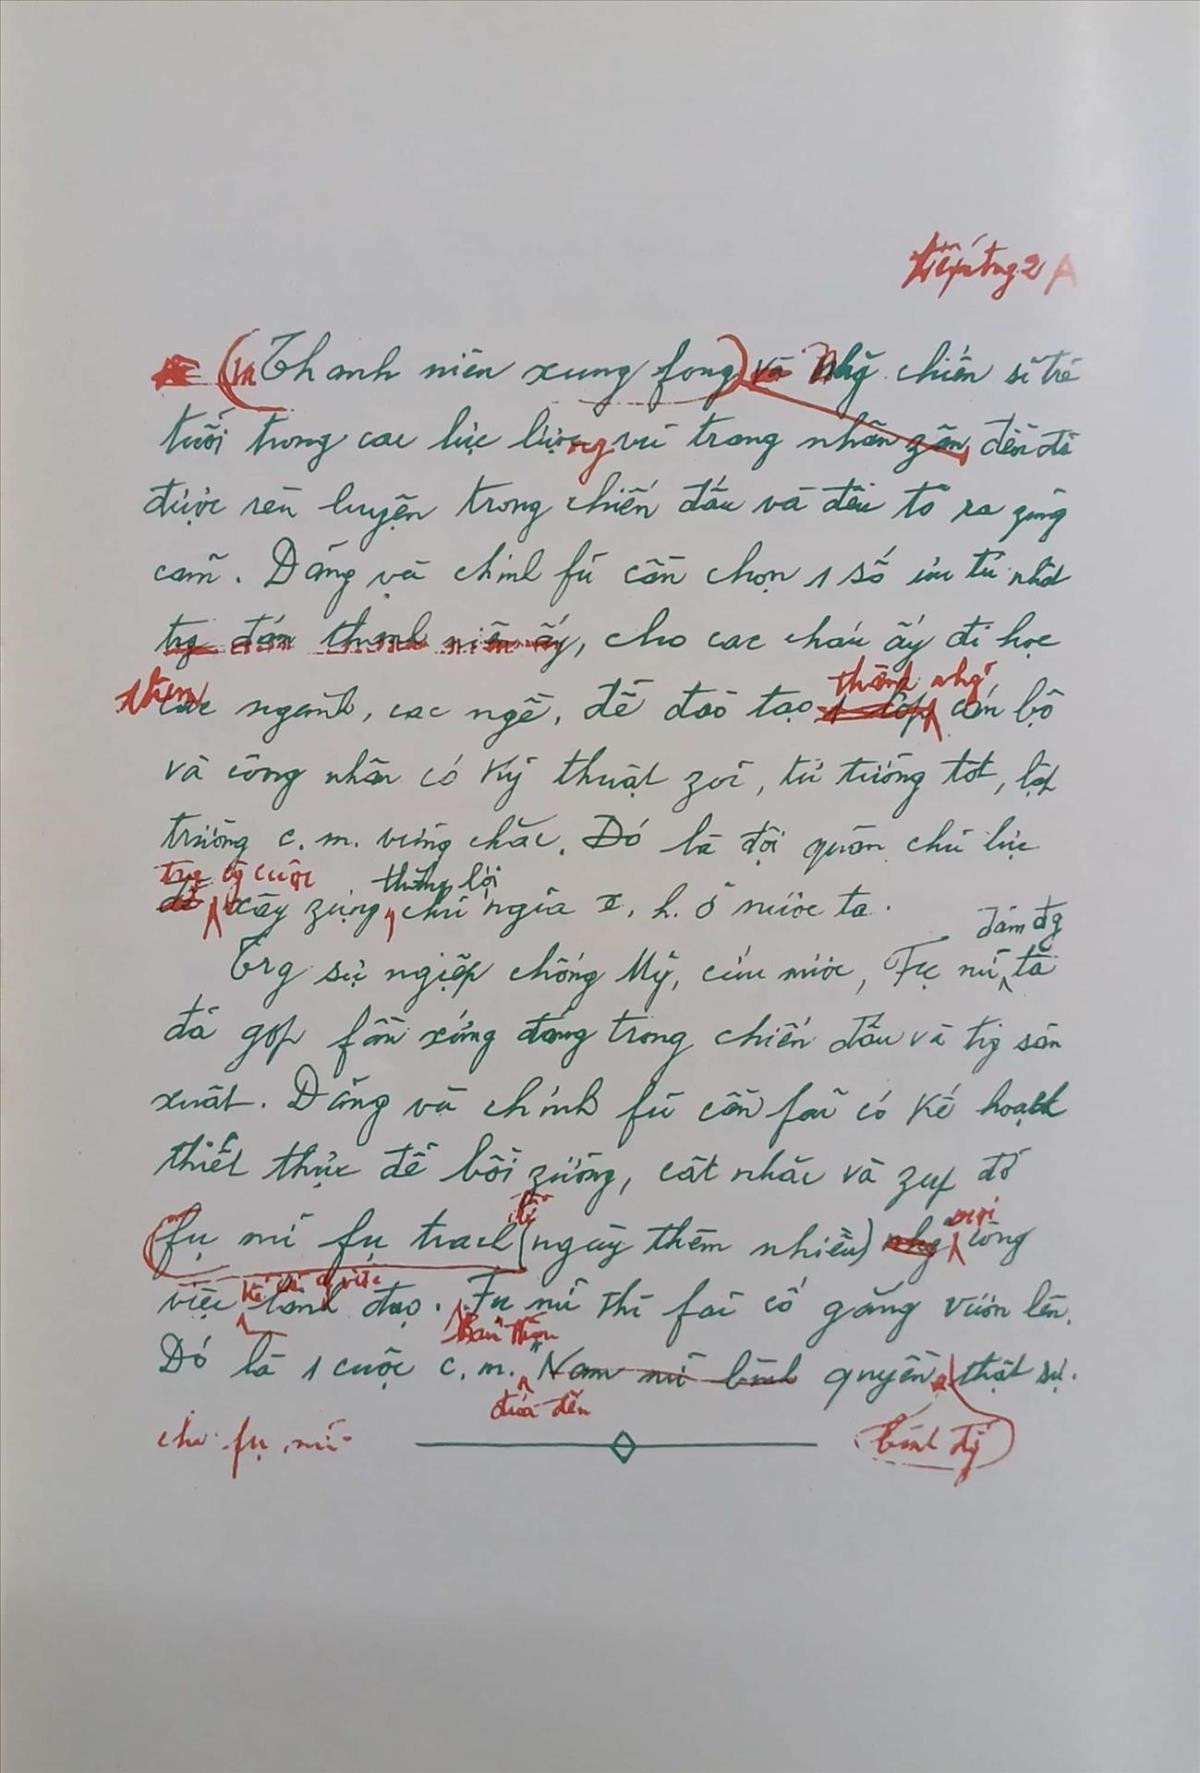 tiếp trg 2 A
(và Thanh niên xung fong) và Nhg chiến sĩ trẻ
tuổi trong các lực lượng vũ trang nhân zân, đều đã
được rèn luyện trong chiến đấu và đều tỏ ra zũng
cảm. Đảng và chính fủ cần chọn 1 số ưu tú nhất
trg đám thanh niên ấy, cho các cháu ấy đi học
thêm các ngành, các ngề, để đào tạo 1 lớp cán bộ
thành nhg
và công nhân có kỹ thuật zỏi, tư tưởng tốt, lập
trường c. m. vững chắc. Đó là đội quân chủ lực
trg cuộc thắng lợi
để xây zựng chủ ngĩa x. h. ở nước ta.
đảm đg
Trg sự ngiệp chống Mỹ, cứu nước, Fụ nữ ta
đã góp fần xứng đáng trong chiến đấu và trg sản
xuất. Đảng và chính fủ cần fải có kế hoạch
thiết thực để bồi zưỡng, cất nhắc và zúp đỡ
để mọi
fụ nữ fụ trách (ngày thêm nhiều) nhg công
việc lãnh đạo. Fụ nữ thì fải cố gắng vươn lên.
kể cả việc
Bản thân
Đó là 1 cuộc c. m. "Nam nữ bình quyền" thật sự.
đưa đến
cho fụ nữ bình đg